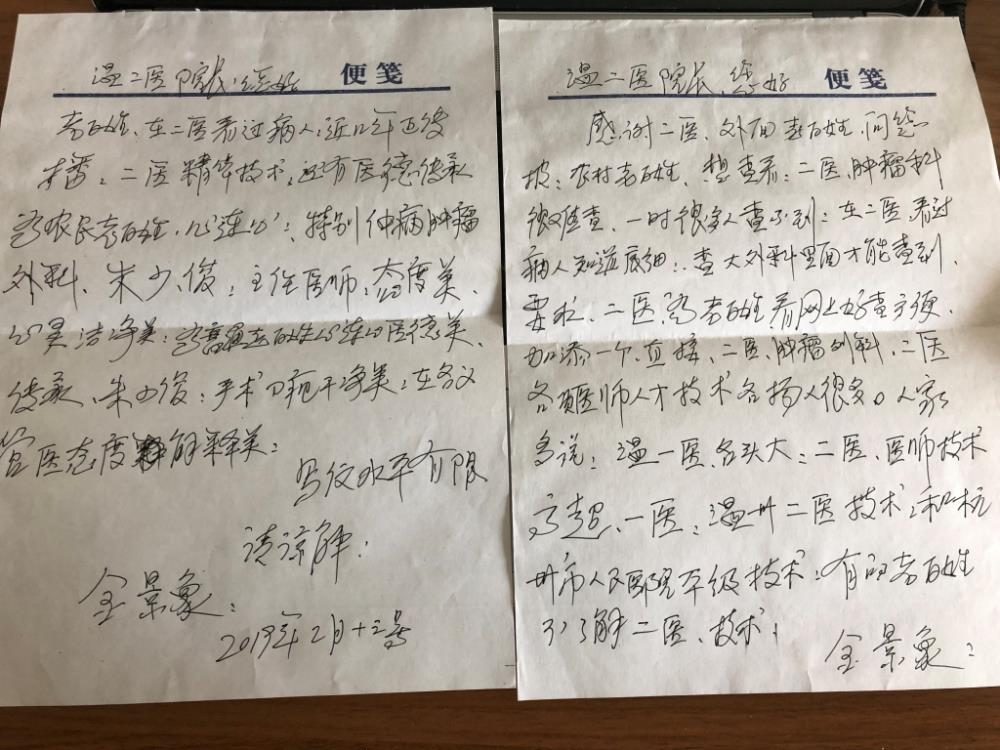 温二医院长：您好
便笺
老百姓、在二医看过病人：近几年
播：二医精华技术：还有医德传承
为农民老百姓、心连心：特别仲病肿瘤
外科、朱少俊：主任医师：态度美、
心灵洁净美：老百姓心连心医德美、
传承、朱少俊：手术刀干净美：在各
医态度解释美：
写纹水平有限
请谅解：
全景象：
2019年2月十二号
温二医院长、您好
便笺
感谢二医、外面老百姓、问
农村老百姓、想查看：二医、肿瘤科
很难查、一时很多人查不到：在二医看过
病人知道底细：查大外科里面才能查到、
要求、二医、为老百姓看网上好查方便、
加添一个、直接、二医、肿瘤外科、二医
各项医师人才技术名扬人很多。人家
多说：温一医、名头大：二医、医师技术
高超、一医：温州二医技术：和杭
州市人民医院平级技术：有的老百姓
不了解二医、技术：
全景象：